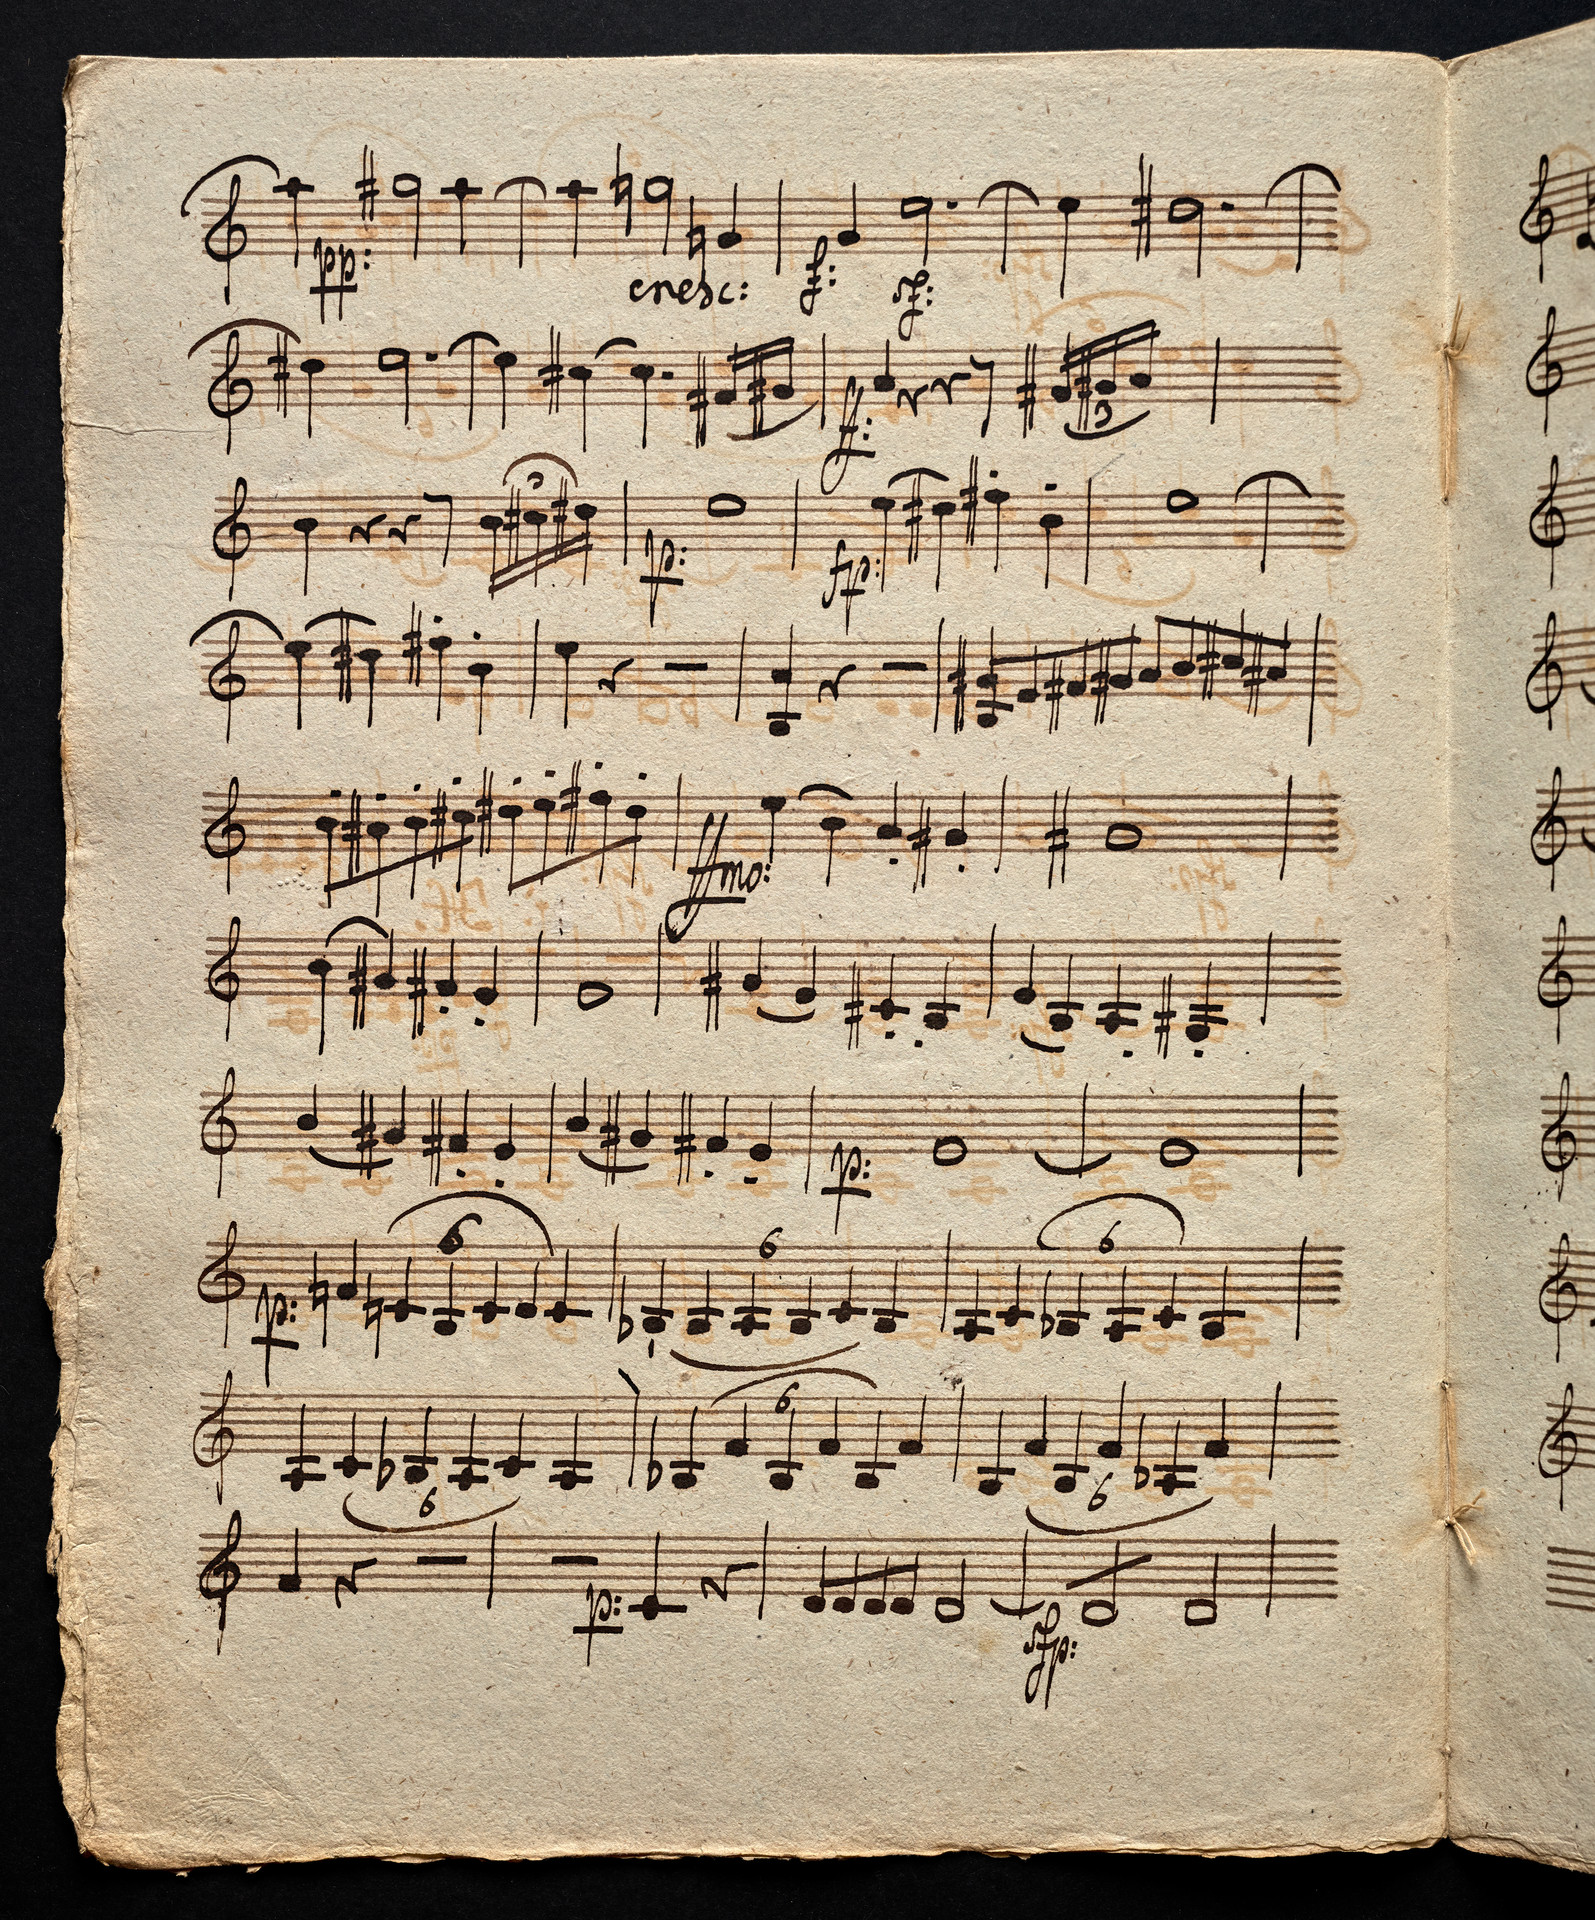 pp: cresc: f: sf:
ff: 3
3 p: fp:
ffmo:
p:
p: 6 6 6
6 6 6
p: sfp: